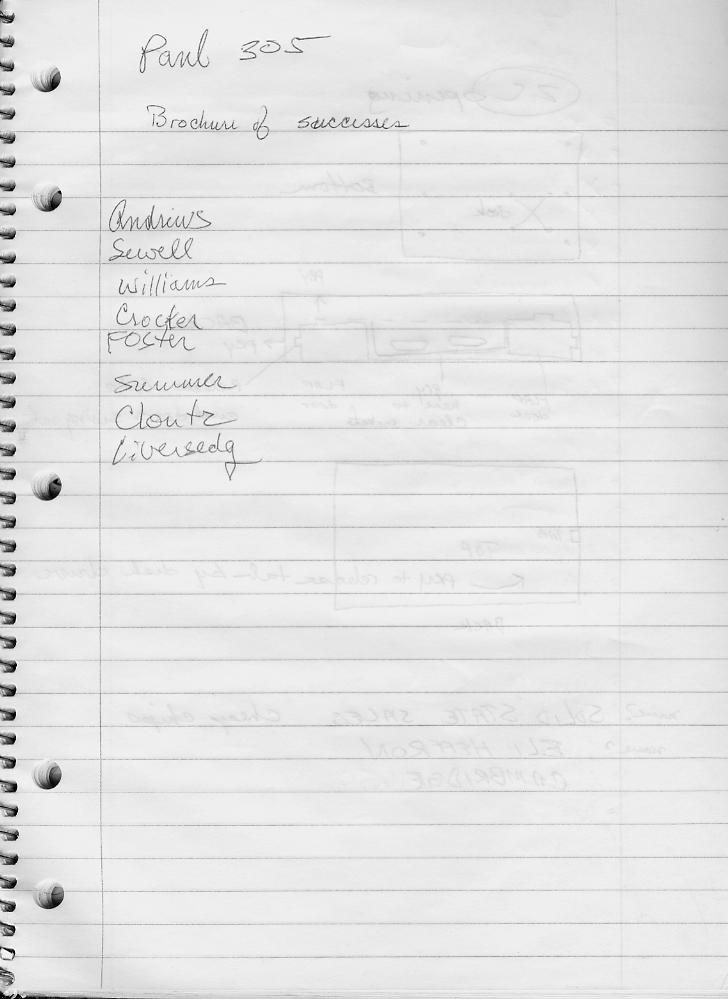 Paul 305
Brochure of successes
Andrews
Sewell
Williams
Crocker
Foster
Summer
Cloutz
Liversedg